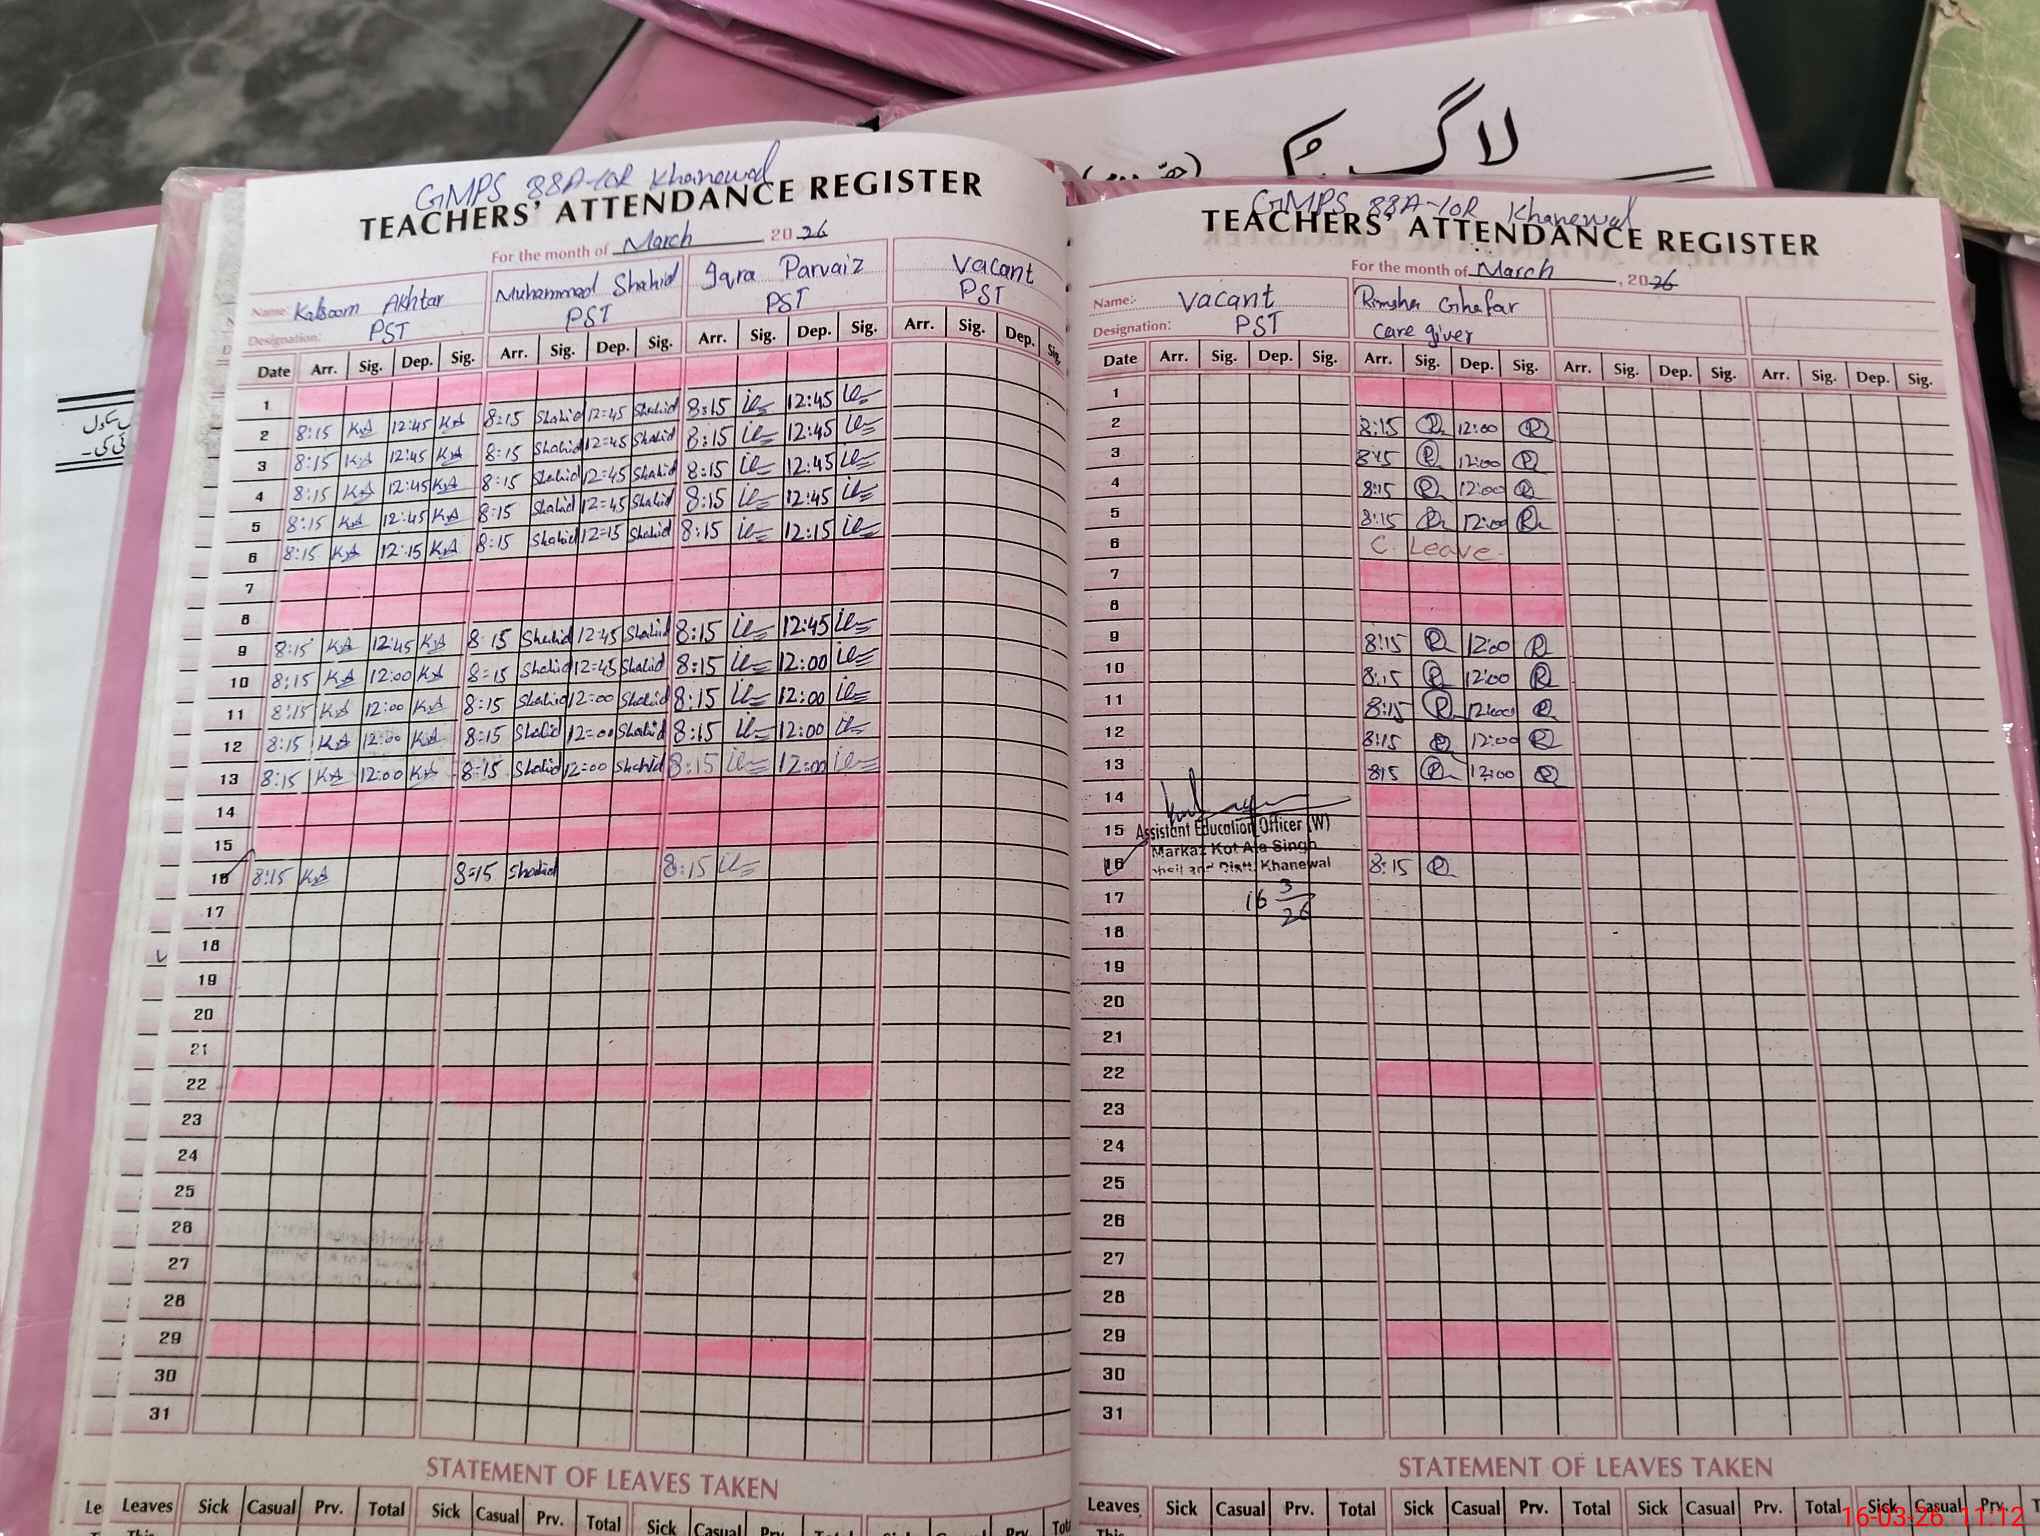 لاگ بک
GMPS 88A-10R Khanewal
TEACHERS' ATTENDANCE REGISTER
For the month of March 2026
Name: Kalsoom Akhtar Muhammad Shahid Iqra Parvaiz Vacant
Designation: PST PST PST PST
Date Arr. Sig. Dep. Sig. Arr. Sig. Dep. Sig. Arr. Sig. Dep. Sig. Arr. Sig. Dep. Sig.
1
2 8:15 KA 12:45 KA 8:15 Shahid 12:45 Shahid 8:15 12:45
3 8:15 KA 12:45 KA 8:15 Shahid 12:45 Shahid 8:15 12:45
4 8:15 KA 12:45 KA 8:15 Shahid 12:45 Shahid 8:15 12:45
5 8:15 KA 12:45 KA 8:15 Shahid 12:45 Shahid 8:15 12:45
6 8:15 KA 12:15 KA 8:15 Shahid 12:15 Shahid 8:15 12:15
7
8
9 8:15 KA 12:45 KA 8:15 Shahid 12:45 Shahid 8:15 12:45
10 8:15 KA 12:00 KA 8:15 Shahid 12:45 Shahid 8:15 12:00
11 8:15 KA 12:00 KA 8:15 Shahid 12:00 Shahid 8:15 12:00
12 8:15 KA 12:00 KA 8:15 Shahid 12:00 Shahid 8:15 12:00
13 8:15 KA 12:00 KA 8:15 Shahid 12:00 Shahid 8:15 12:00
14
15
16 8:15 KA 8:15 Shahid 8:15
17
18
19
20
21
22
23
24
25
26
27
28
29
30
31
STATEMENT OF LEAVES TAKEN
Leaves Sick Casual Prv. Total Sick Casual Prv. Total Sick Casual Prv. Total Sick Casual Prv.
GMPS 88A-10R Khanewal
TEACHERS' ATTENDANCE REGISTER
For the month of March, 2026
Name:- Vacant Rimsha Ghafar
Designation: PST care giver
Date Arr. Sig. Dep. Sig. Arr. Sig. Dep. Sig. Arr. Sig. Dep. Sig. Arr. Sig. Dep. Sig.
1
2 8:15 R 12:00 R
3 8:15 R 12:00 R
4 8:15 R 12:00 R
5 8:15 R 12:00 R
6 C. Leave
7
8
9 8:15 R 12:00 R
10 8:15 R 12:00 R
11 8:15 R 12:00 R
12 8:15 R 12:00 R
13 8:15 R 12:00 R
14
15 Assistant Education Officer (W)
Markaz Kot Ala Singh
16 and Distt: Khanewal 8:15 R
17 16 3/26
18
19
20
21
22
23
24
25
26
27
28
29
30
31
STATEMENT OF LEAVES TAKEN
Leaves Sick Casual Prv. Total Sick Casual Prv. Total Sick Casual Prv. Total Sick Casual Prv.
16-03-26 11:12